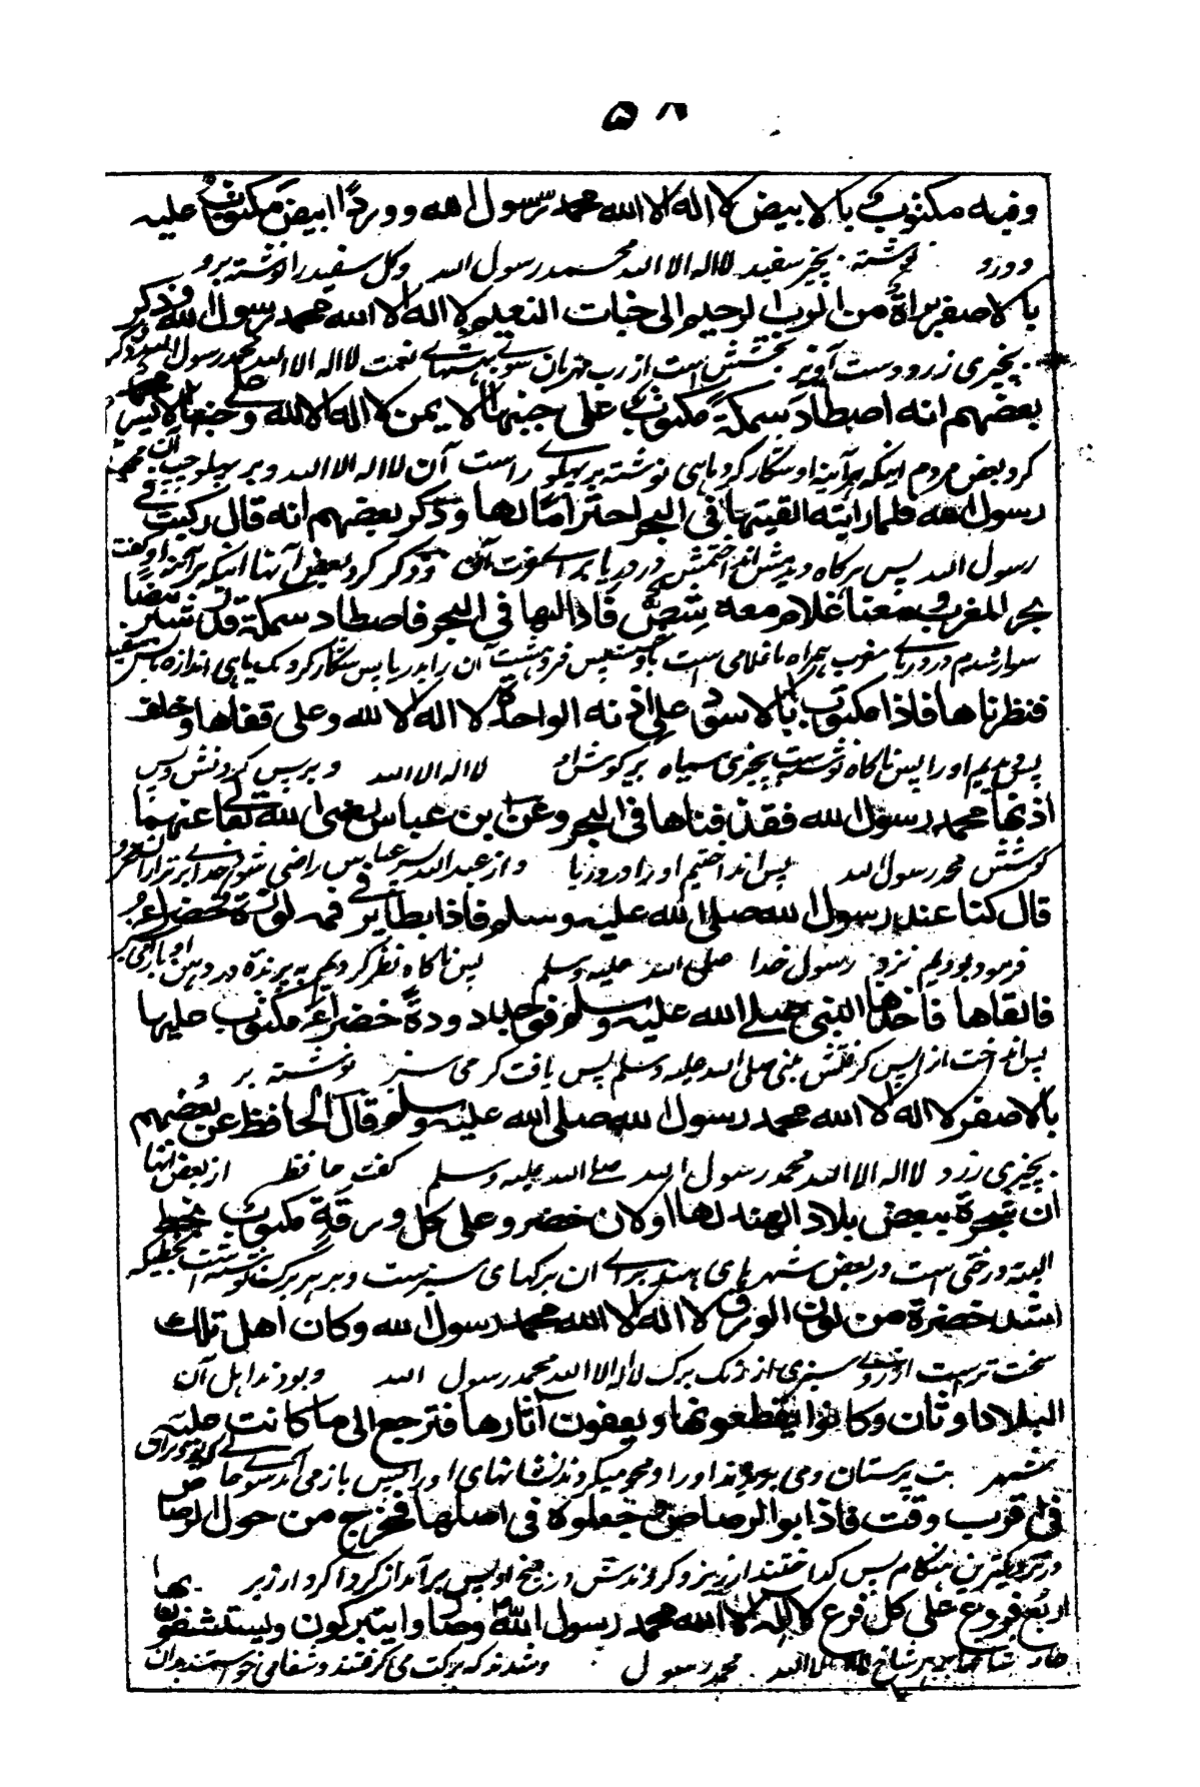 ٥٨
وفيه مكتوب بالابيض لا اله الا الله محمد رسول الله ووردا ابيض مكتوب عليه
نوشته بچيز سفيد لا اله الا الله محمد رسول الله وكل سفيد را نوشته برو
بالاصفر براءة من الرب الرحيم الى جنات النعيم لا اله الا الله محمد رسول الله وذكر
بچيزى زرد بخشش است از رب مهربان سوے بهشتهاے نعمت لا اله الا الله محمد رسول الله
بعضهم انه اصطاد سمكة مكتوب على جنبها الايمن لا اله الا الله وعلى جنبها الايسر محمد
كرد بعض مردم اينكه هر آينه او شكار كرد ماهى نوشته بر پهلوے راست آن لا اله الا الله وبر پهلو چپ آن محمد
رسول الله فلما رايته القيتها فى البحر احتراما لها وذكر بعضهم انه قال ركبت فى
رسول الله پس هرگاه ديدمش انداختمش در دريا براے وذكر كرد بعض آنها اينكه هر آينه او گفت
بحر المغرب ومعنا غلام معه شص فاذ البها فى البحر فاصطاد سمكة قدر شبر بيضا
سوار شدم در درياے مغرب همراه ما غلامى است آن را بدريا پس شكار كرد يك ماهى اندازه
فنظرناها فاذا مكتوب بالاسود على اذنه الواحدة لا اله الا الله وعلى قفاها وخلف
پس ديديم او را پس ناگاه نوشته است بچيزى سياه بر گوش او لا اله الا الله وبر پس گردنش وپس
اذنها محمد رسول الله فقذفناها فى البحر وعن ابن عباس رضى الله تعالى عنهما
گوشش محمد رسول الله پس انداختيم او را در دريا واز عبد الله پسر عباس راضى شود خداے برتر
قال كنا عند رسول الله صلى الله عليه وسلم فاذا بطاير فى فمه لوزة خضراء
فرمود بوديم نزد رسول خدا صلى الله عليه وسلم پس ناگاه نظر كرديم به پرندۀ در دهن او
فالقاها فاخذها النبى صلے الله عليه وسلم فوجد دودة خضراء مكتوب عليها
پس انداخت او را پس گرفتش نبى صلى الله عليه وسلم پس يافت كرمى سبز نوشته بر و
بالاصفر لا اله الا الله محمد رسول الله صلى الله عليه وسلم وقال الحافظ عن بعضهم
بچيزى زرد لا اله الا الله محمد رسول الله صلے الله عليه وسلم گفت حافظ از بعض آنها
ان شجرة ببعض بلاد الهند لها اوراق خضر وعلى كل ورقة مكتوب بخط
البته درختى است در بعض شهرهاى هند براے آن برگهاى سبزست وبر هر برگ نوشته است بخطيكه
اشد خضرة من لون الورق لا اله الا الله محمد رسول الله وكان اهل تلك
سخت ترست از روے سبزى از رنگ برگ لا اله الا الله محمد رسول الله وبودند اهل آن
البلاد اوثان وكانوا يقطعونها ويعفون آثارها فترجع الى ما كانت عليه
شهر بت پرستان ومى بريدند او را ومحو ميكردند نشانهاى او را پس باز مى آمد سوے
فى اقرب وقت فاذابوا الرصاص وجعلوه فى اصلها فخرج من حول الرصاص
در نزديكترين هنگام پس گداختند ارزيز وكردندش در بيخ او پس بر آمد از گرداگرد ارزيز
اربع فروع على كل فرع لا اله الا الله محمد رسول الله وصاروا يتبركون ويستشفون بها
چار شاخها بر هر شاخ لا اله الا الله محمد رسول وشدند كه بركت مى گرفتند وشفا مى خواستند بدان